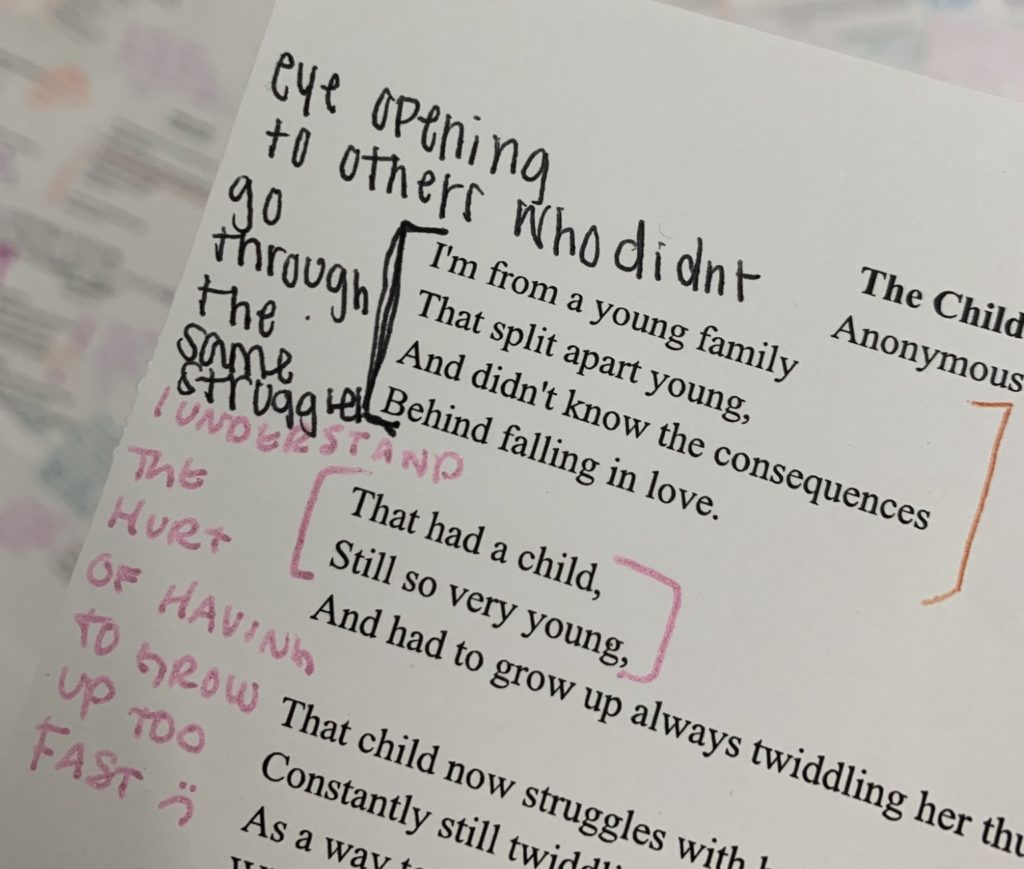 eye opening
to others who didnt
go
through
the
same
struggles
The Child
Anonymous
I'm from a young family
That split apart young,
And didn't know the consequences
Behind falling in love.
I UNDERSTAND
THE
HURT
OF HAVING
TO GROW
UP TOO
FAST :(
That had a child,
Still so very young,
And had to grow up always twiddling her
That child now struggles with
Constantly still
As a way